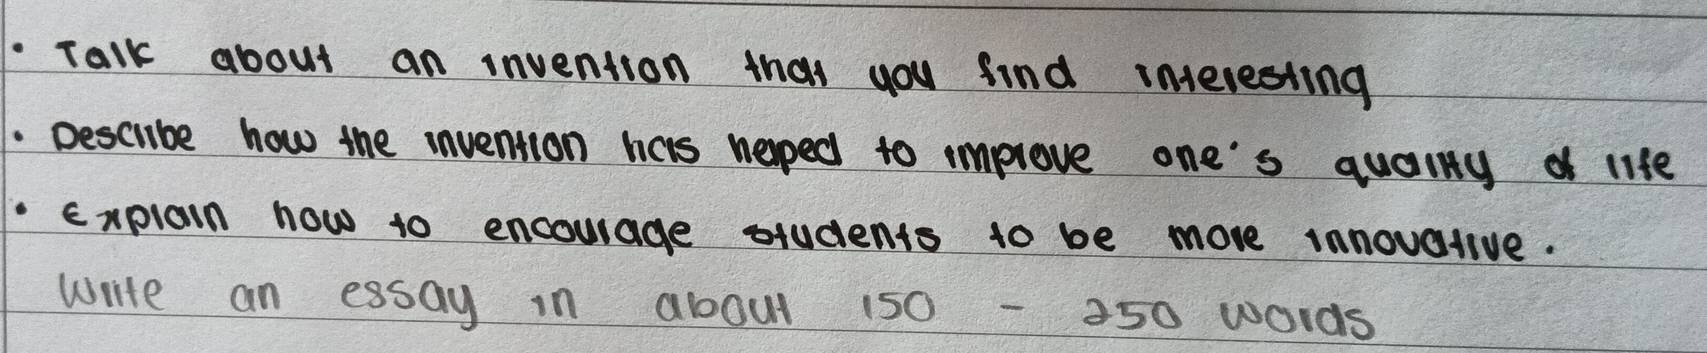 • Talk about an invention that you find interesting
• Describe how the invention has helped to improve one's quality of life
• Explain how to encourage students to be more innovative.
Write an essay in about 150 - 250 words